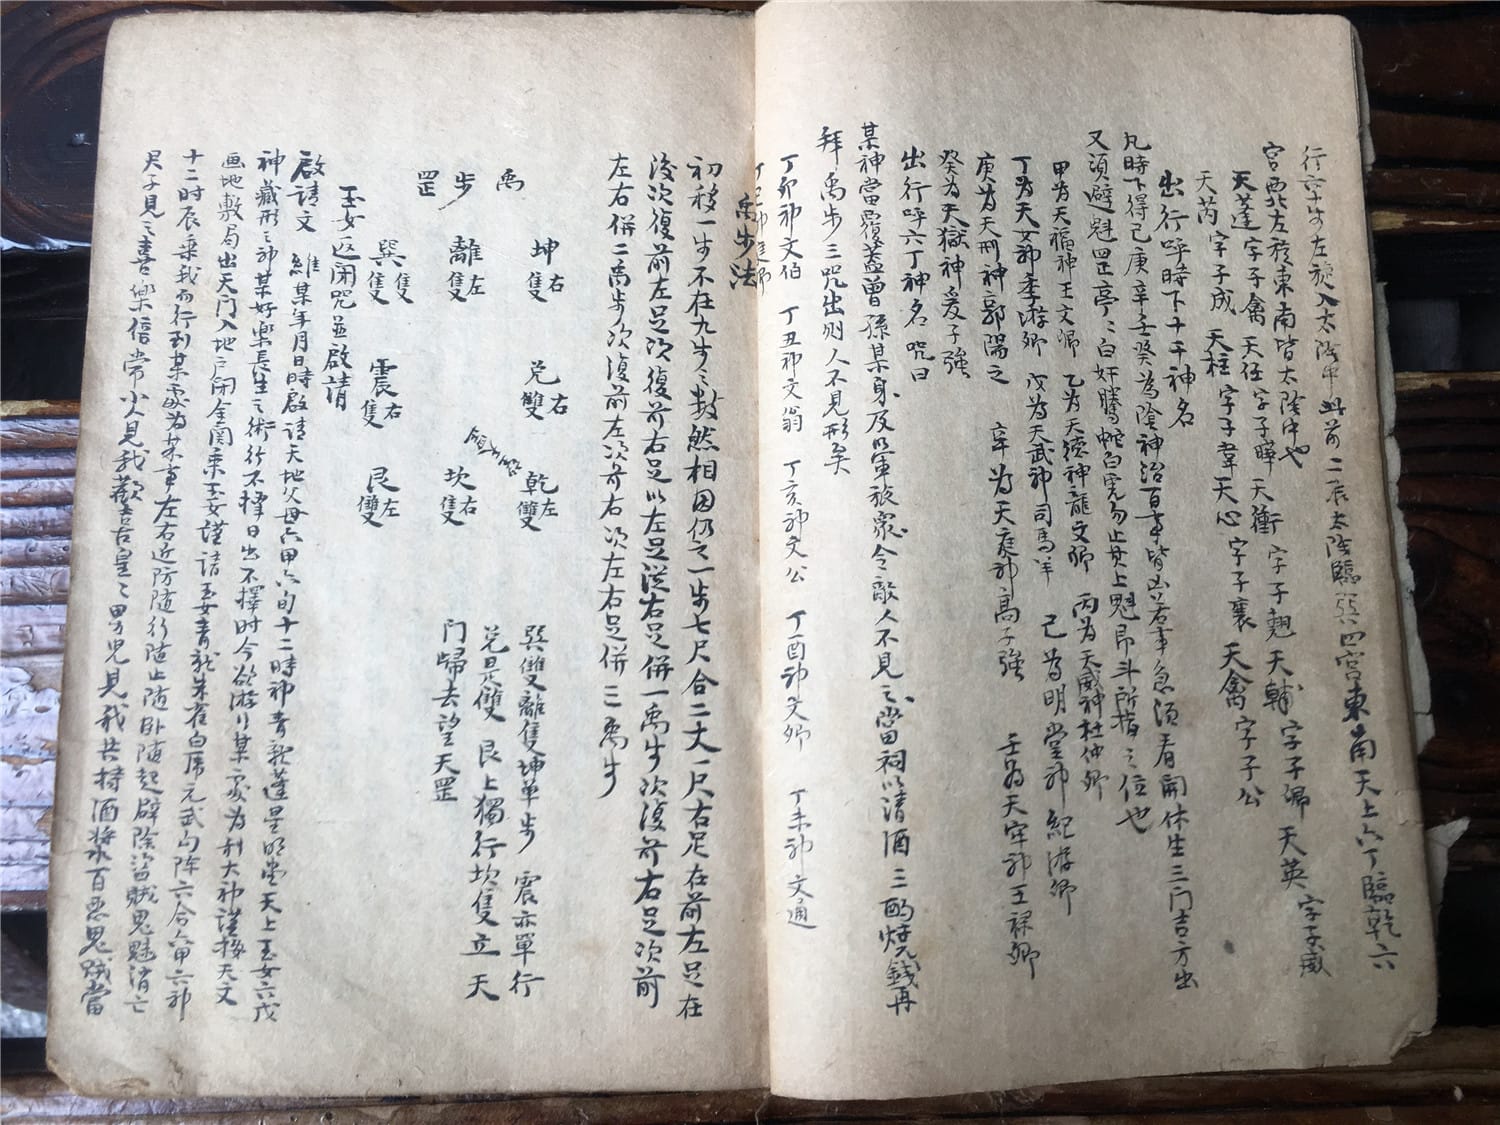 行六十步左旋入太陰中 此前二辰太陰臨巽四宮東南天上六丁臨乾六
宮西北左旋東南皆太陰中也
天蓬字子禽 天任字子暉 天衝字子翹 天輔字子卿 天英字子威
天芮字子成 天柱字子韋 天心字子襄 天禽字子公
出行呼時下十干神名
凡時下得己庚辛壬癸為陰神治百事皆凶若事急須看開休生三门吉方出
又須避魁罡亭亭白奸騰蛇白虎勿止其上魁罡斗所指之位也
甲為天福神王文卿 乙為天德神龍文卿 丙為天威神杜仲卿
丁為天女神季游卿 戊為天武神司馬羊 己為明堂神紀游卿
庚為天刑神郭陽之 辛為天庭神高子強 壬為天牢神王祿卿
癸為天獄神爰子強
出行呼六丁神名咒曰
某神當覆蓋曾孫某身及以軍旅眾令敵人不見之當祠以清酒三酌燒錢再
拜禹步三咒出則人不見形矣
丁卯神文伯 丁丑神文翁 丁亥神文公 丁酉神文卿 丁未神文通
禹步法
初移一步不在九步之數然相因仍之一步七尺合二丈一尺右足在前左足在
後次復前左足次復前右足以左足從右足併一禹步次復前右足次前
左右併二禹步次復前左次前右次左右足併三禹步
禹 坤右隻 兌右雙 乾左雙 巽雙離隻坤單步 震亦單行
步 離左隻 坎右隻 兌是雙 艮上獨行坎隻立 天
罡 巽雙隻 震右隻 艮左雙 门歸去望天罡
玉女返閉咒並啟請
啟請文 維某年月日時啟請天地父母六甲六旬十二時神青龍蓬星明堂天上玉女六戊
神藏形之神某好樂長生之術行不擇日出不擇時今欲游行某處為利大神謹按天文
画地敷局出天门入地户閉金關乘玉女謹請玉女青龍朱雀白虎元武勾陣六合六甲六神
十二时辰乘我而行到某處為某事左右近防隨行隨止隨卧隨起辟除盜賊鬼魅消亡
君子見之喜樂倍常小人見我歡喜皇皇男兒見我共持酒漿百惡鬼賊當